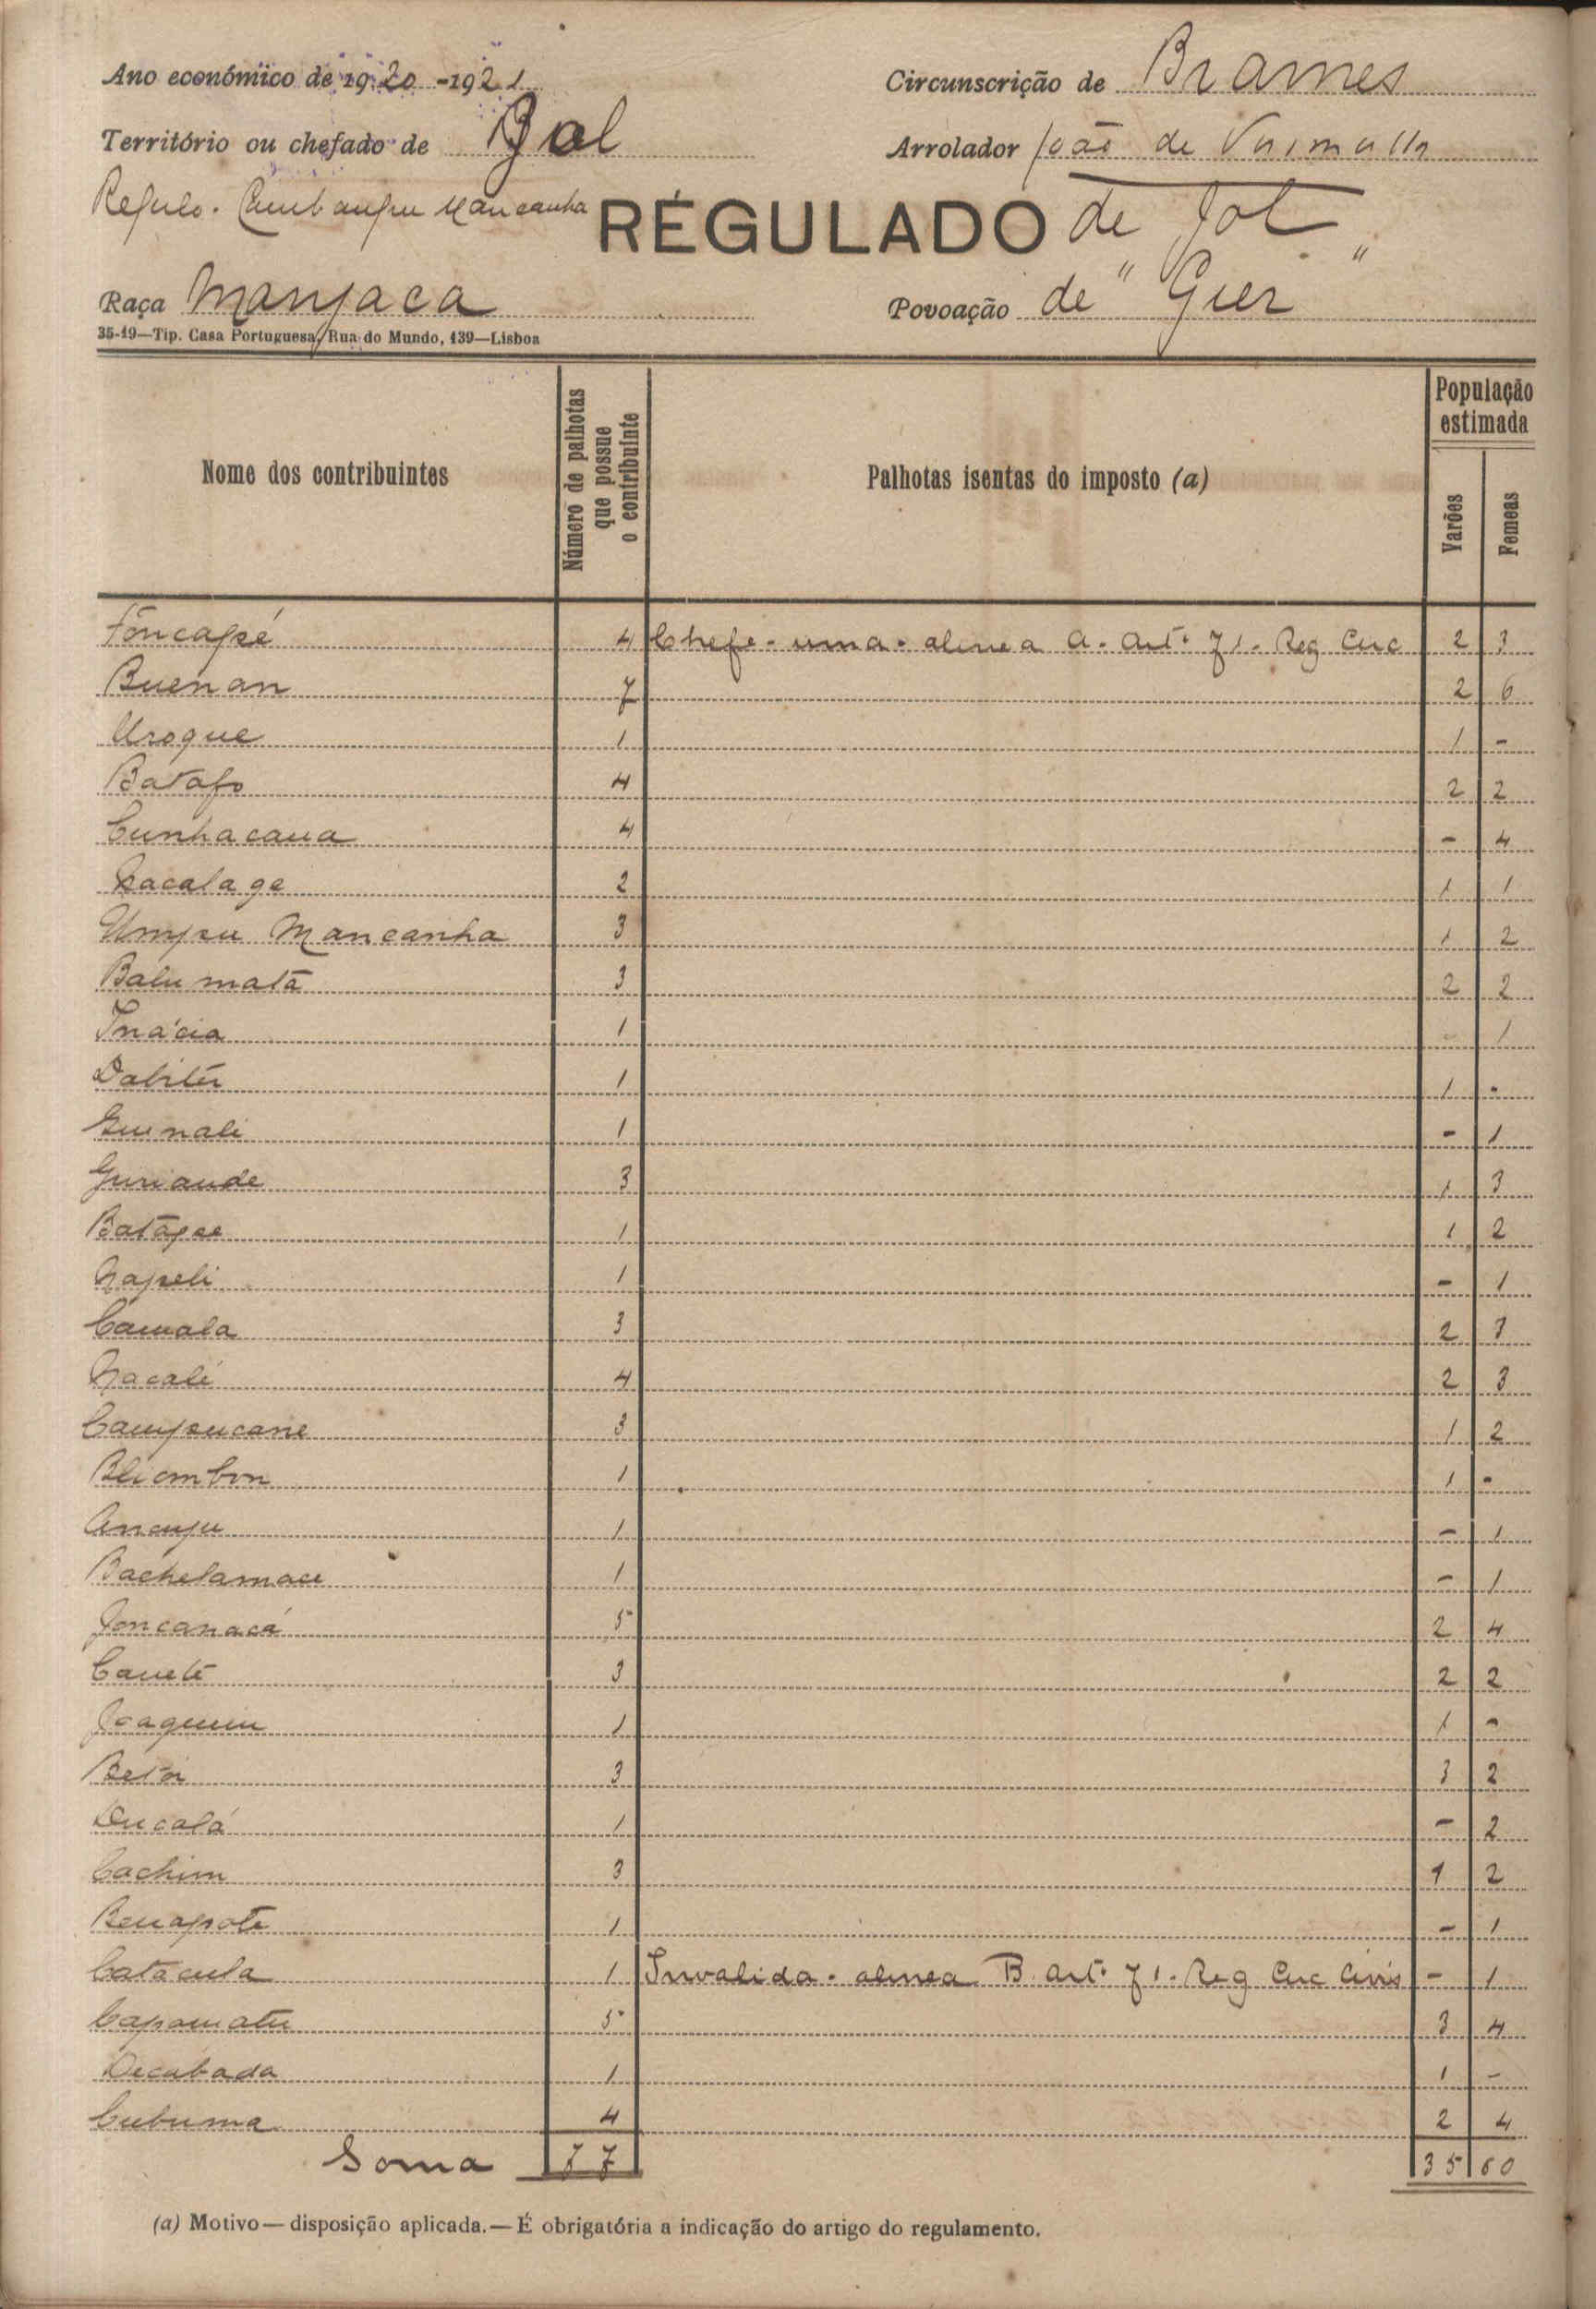 Ano económico de 1920-1921
Circunscrição de Brames
Território ou chefado de Jol
Arrolador João de
Regulo. Mancanha
RÉGULADO de Jol
Raça Manjaca
Povoação de "Guer"
35-19—Tip. Casa Portuguesa, Rua do Mundo, 139—Lisboa
Nome dos contribuintes
Número de palhotas que possue o contribuinte
Palhotas isentas do imposto (a)
População estimada
Varões
Femeas
Foncapé 4 Chefe - uma - alinea A. Artº 71. Reg Circ 2 3
Buenan 7 2 6
Uroque 1 1 -
Batafo 4 2 2
Cunhacaua 4 - 4
2 1 1
Umpu Mancanha 3 1 2
Balumatã 3 2 2
Inácia 1 - 1
1 1 -
1 - 1
Guriande 3 1 3
1 1 2
Napeli 1 - 1
Camala 3 2 3
Nacalé 4 2 3
Campucane 3 1 2
Bliombon 1 1 -
1 - 1
Bachelamace 1 - 1
Joncanacá 5 2 4
Caueté 3 2 2
Joaquim 1 1 -
3 3 2
Ducalá 1 - 2
Cachim 3 1 2
Benapote 1 - 1
Catacula 1 Invalida - alinea B. artº 71. Reg Circ Civis - 1
5 3 4
Decabada 1 1 -
Cubuma 4 2 4
Soma 77 35 60
(a) Motivo — disposição aplicada. — É obrigatória a indicação do artigo do regulamento.